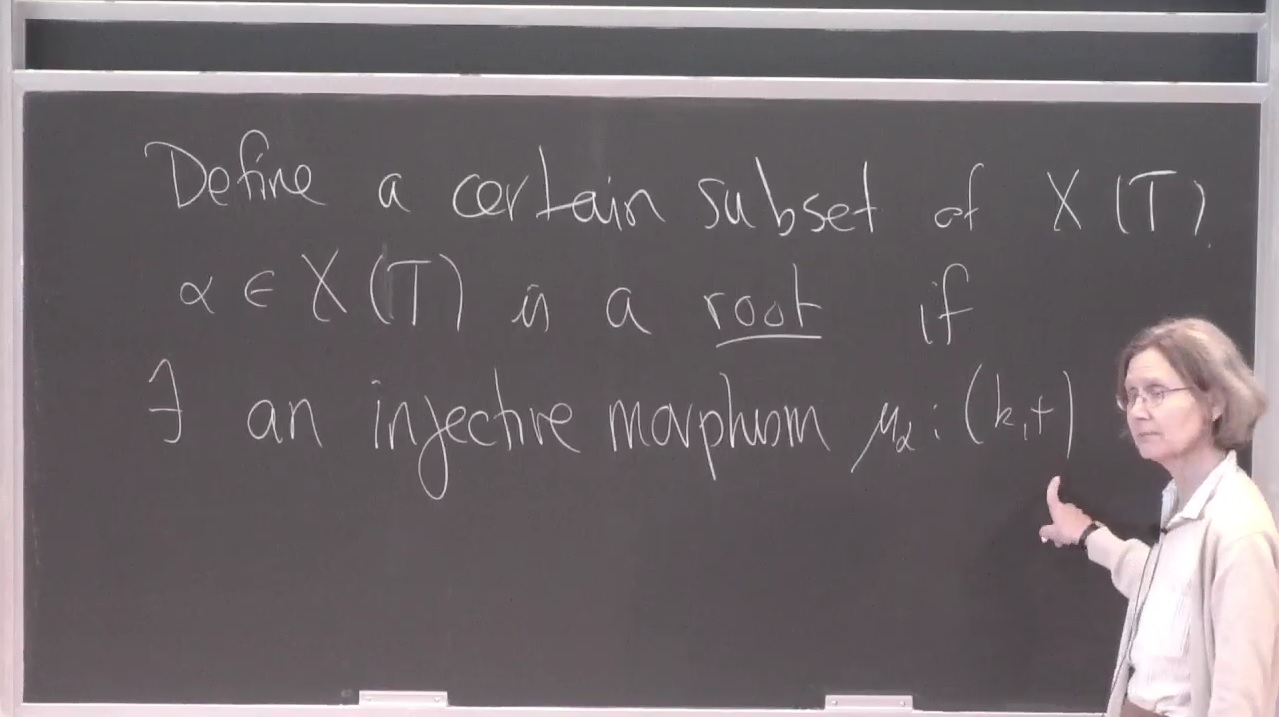 Define a certain subset of X(T).
α ∈ X(T) is a root if
∃ an injective morphism μ_α : (k,+)